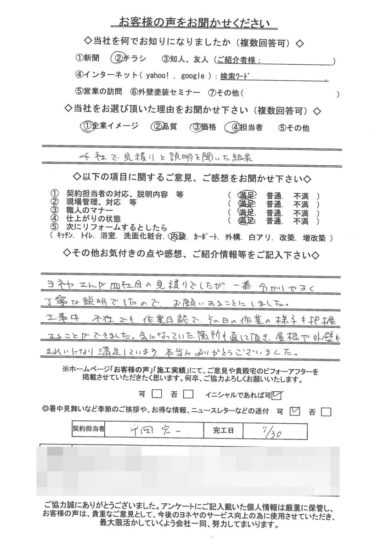 お客様の声をお聞かせください
◇当社を何でお知りになりましたか（複数回答可）◇
①新聞 ②チラシ ③知人、友人（ご紹介者様： ）
④インターネット（yahoo!，google）：検索ワード
⑤営業の訪問 ⑥外壁塗装セミナー ⑦その他（ ）
◇当社をお選び頂いた理由をお聞かせ下さい（複数回答可）◇
①企業イメージ ②品質 ③価格 ④担当者 ⑤その他
4社で見積りと説明を聞いた結果
◇以下の項目に関するご意見、ご感想をお聞かせ下さい◇
① 契約担当者の対応、説明内容 等 （ 満足. 普通. 不満 ）
② 現場管理、対応 等 （ 満足. 普通. 不満 ）
③ 職人のマナー （ 満足. 普通. 不満 ）
④ 仕上がりの状態 （ 満足. 普通. 不満 ）
⑤ 次にリフォームするとしたら
（ キッチン. トイレ. 浴室. 洗面化粧台. 内装. カーポート. 外構. 白アリ. 改築. 増改築 ）
◇その他お気付きの点や感想、ご紹介情報等をご記入下さい◇
ヨネヤさんが四社目の見積りでしたが一番分かりやすく
丁寧な説明でしたので お願いすることにしました。
工事中 不在でも作業日誌で その日の作業の様子も把握
することができました。気になっていた箇所も直して頂き、屋根や外壁も
きれいになり満足しています 本当にありがとうございました。
※ホームページ「お客様の声」「施工実績」にて、ご意見や貴殿宅のビフォーアフターを
掲載させていただきたく思います。何卒、ご協力よろしくお願いいたします。
可 □ 否 □ イニシャルであれば可
◎暑中見舞いなど季節のご挨拶や、お得な情報、ニュースレターなどの送付 可 否 □
契約担当者 完工日 7/30
ご協力誠にありがとうございました。アンケートにご記入戴いた個人情報は厳重に保管し、
お客様の声は、貴重なご意見として、今後のヨネヤのサービス向上の為に使用させていただき、
最大限活かしていくよう会社一同、努力してまいります。